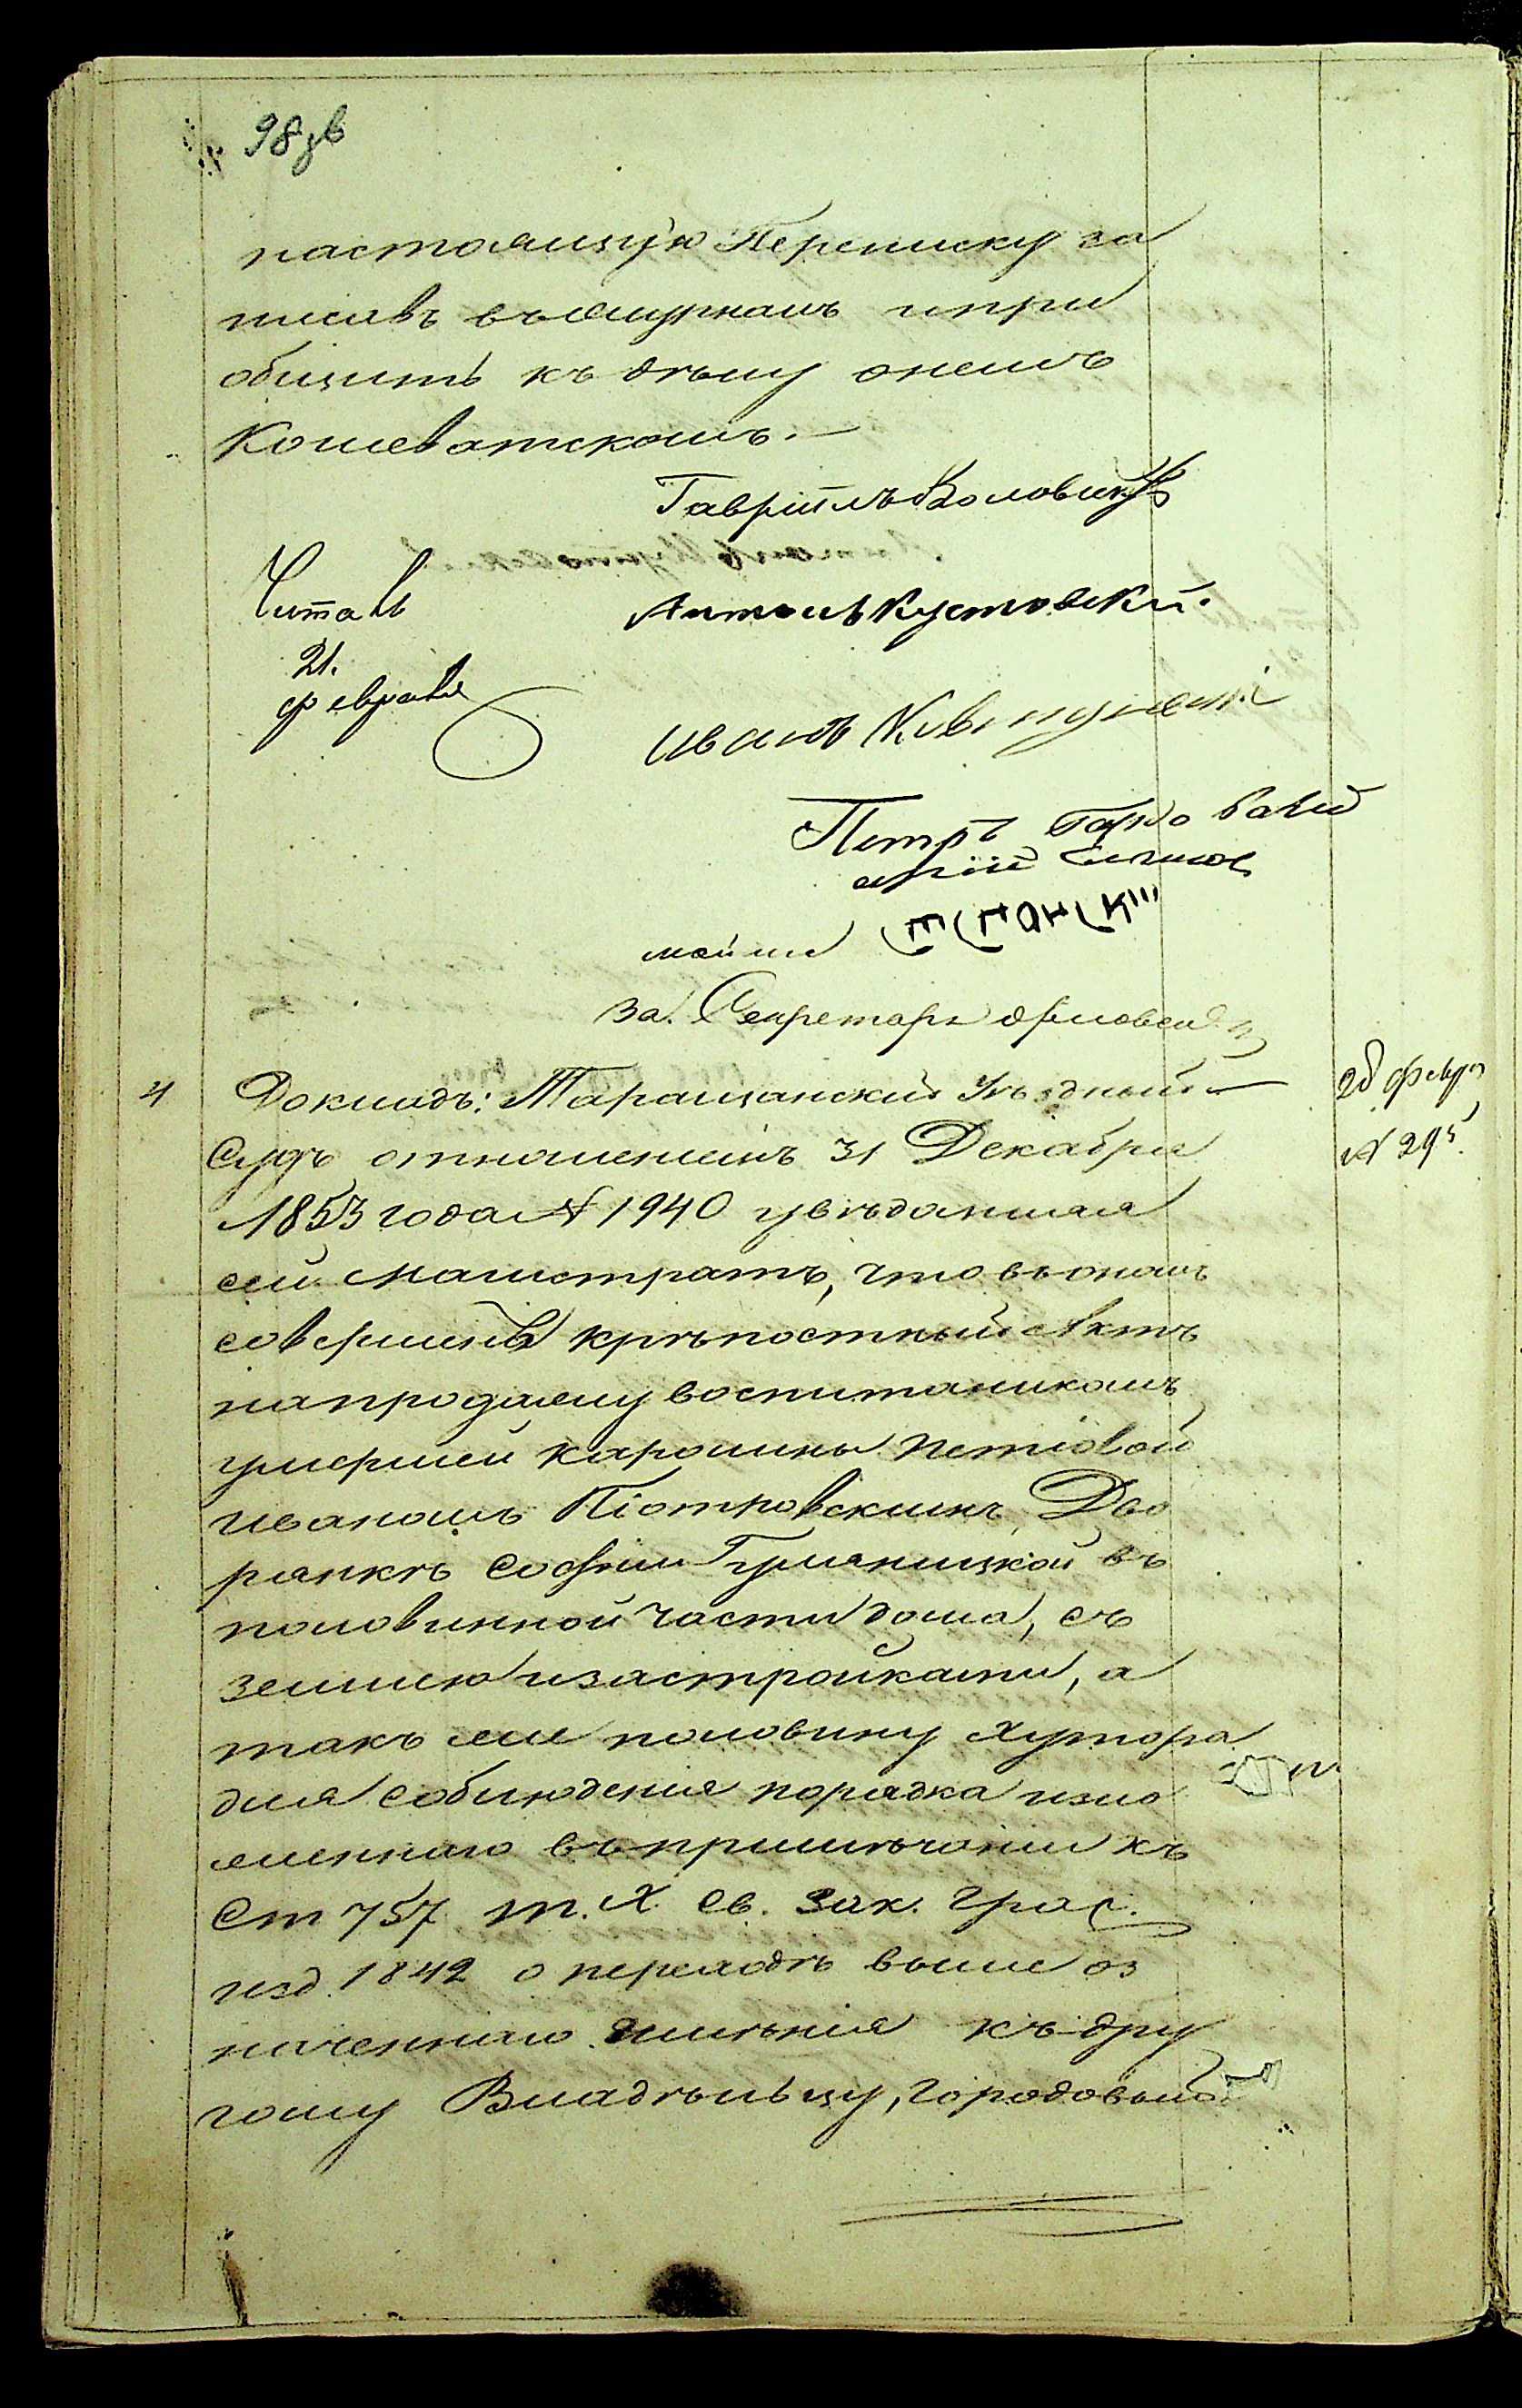 98 зв
настоящую Переписку за
писавъ въ журналъ и при
общить къ дѣлу онемъ
Кошеватскомъ.—
Гавріилъ
Читалъ
21.
февраля
Антонъ Кустовскій.
Иванъ
Петръ
За. Секретаря Орловскій
4 Докладъ: Таращанскій Уѣздный
Судъ отношеніемъ 31 Декабря
1853 года № 1940 увѣдомляя
сей магистратъ, что въ ономъ
совершенъ крѣпостный Актъ
на продажу воспитаникомъ
умершей Каролины
Иваномъ Піотровскимъ, Дво
рянкѣ Софіи Гуляницкой въ
половинной части дома, съ
землею и застройками, а
такъ же половину Хутора
для соблюденія порядка изло
женнаго въ примѣчаніи къ
Ст 757 т. X. Св. Зак. Граж.
изд. 1842 о переходѣ выше оз
наченнаго имѣнія къ дру
гому Владѣльцу, городовый
28 февр
№ 295.